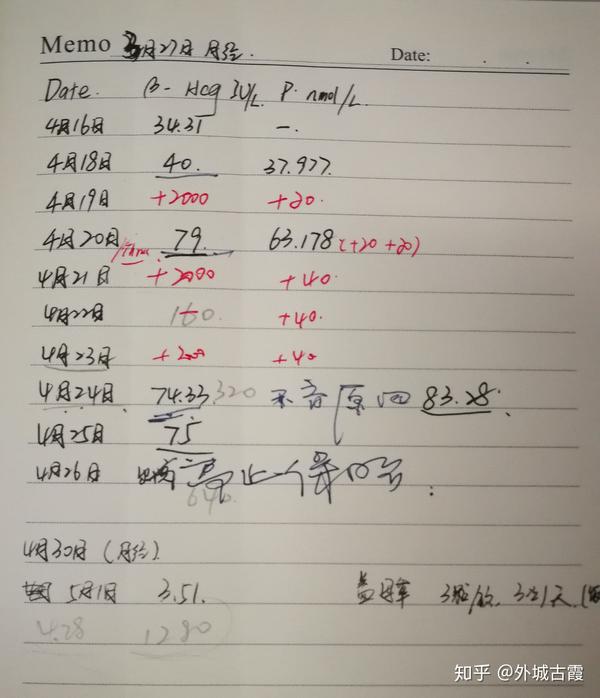 Memo 3月27日 月经.
Date:
Date. β- Hcg IU/L. P. nmol/L.
4月16日 34.31 —.
4月18日 40. 37.977.
4月19日 +2000 +20.
4月20日 79. 63.178 (+20 +20)
4月21日 +2000 +40.
4月22日 160. +40.
4月23日 +200 +40
4月24日. 74.33 320 原因 83.28.
4月25日 75
4月26日 640.
4月30日 (月经)
5月1日 3.51. 益母草 3粒/次. 3次/天.
4.28 1280
知乎 @外城古霞